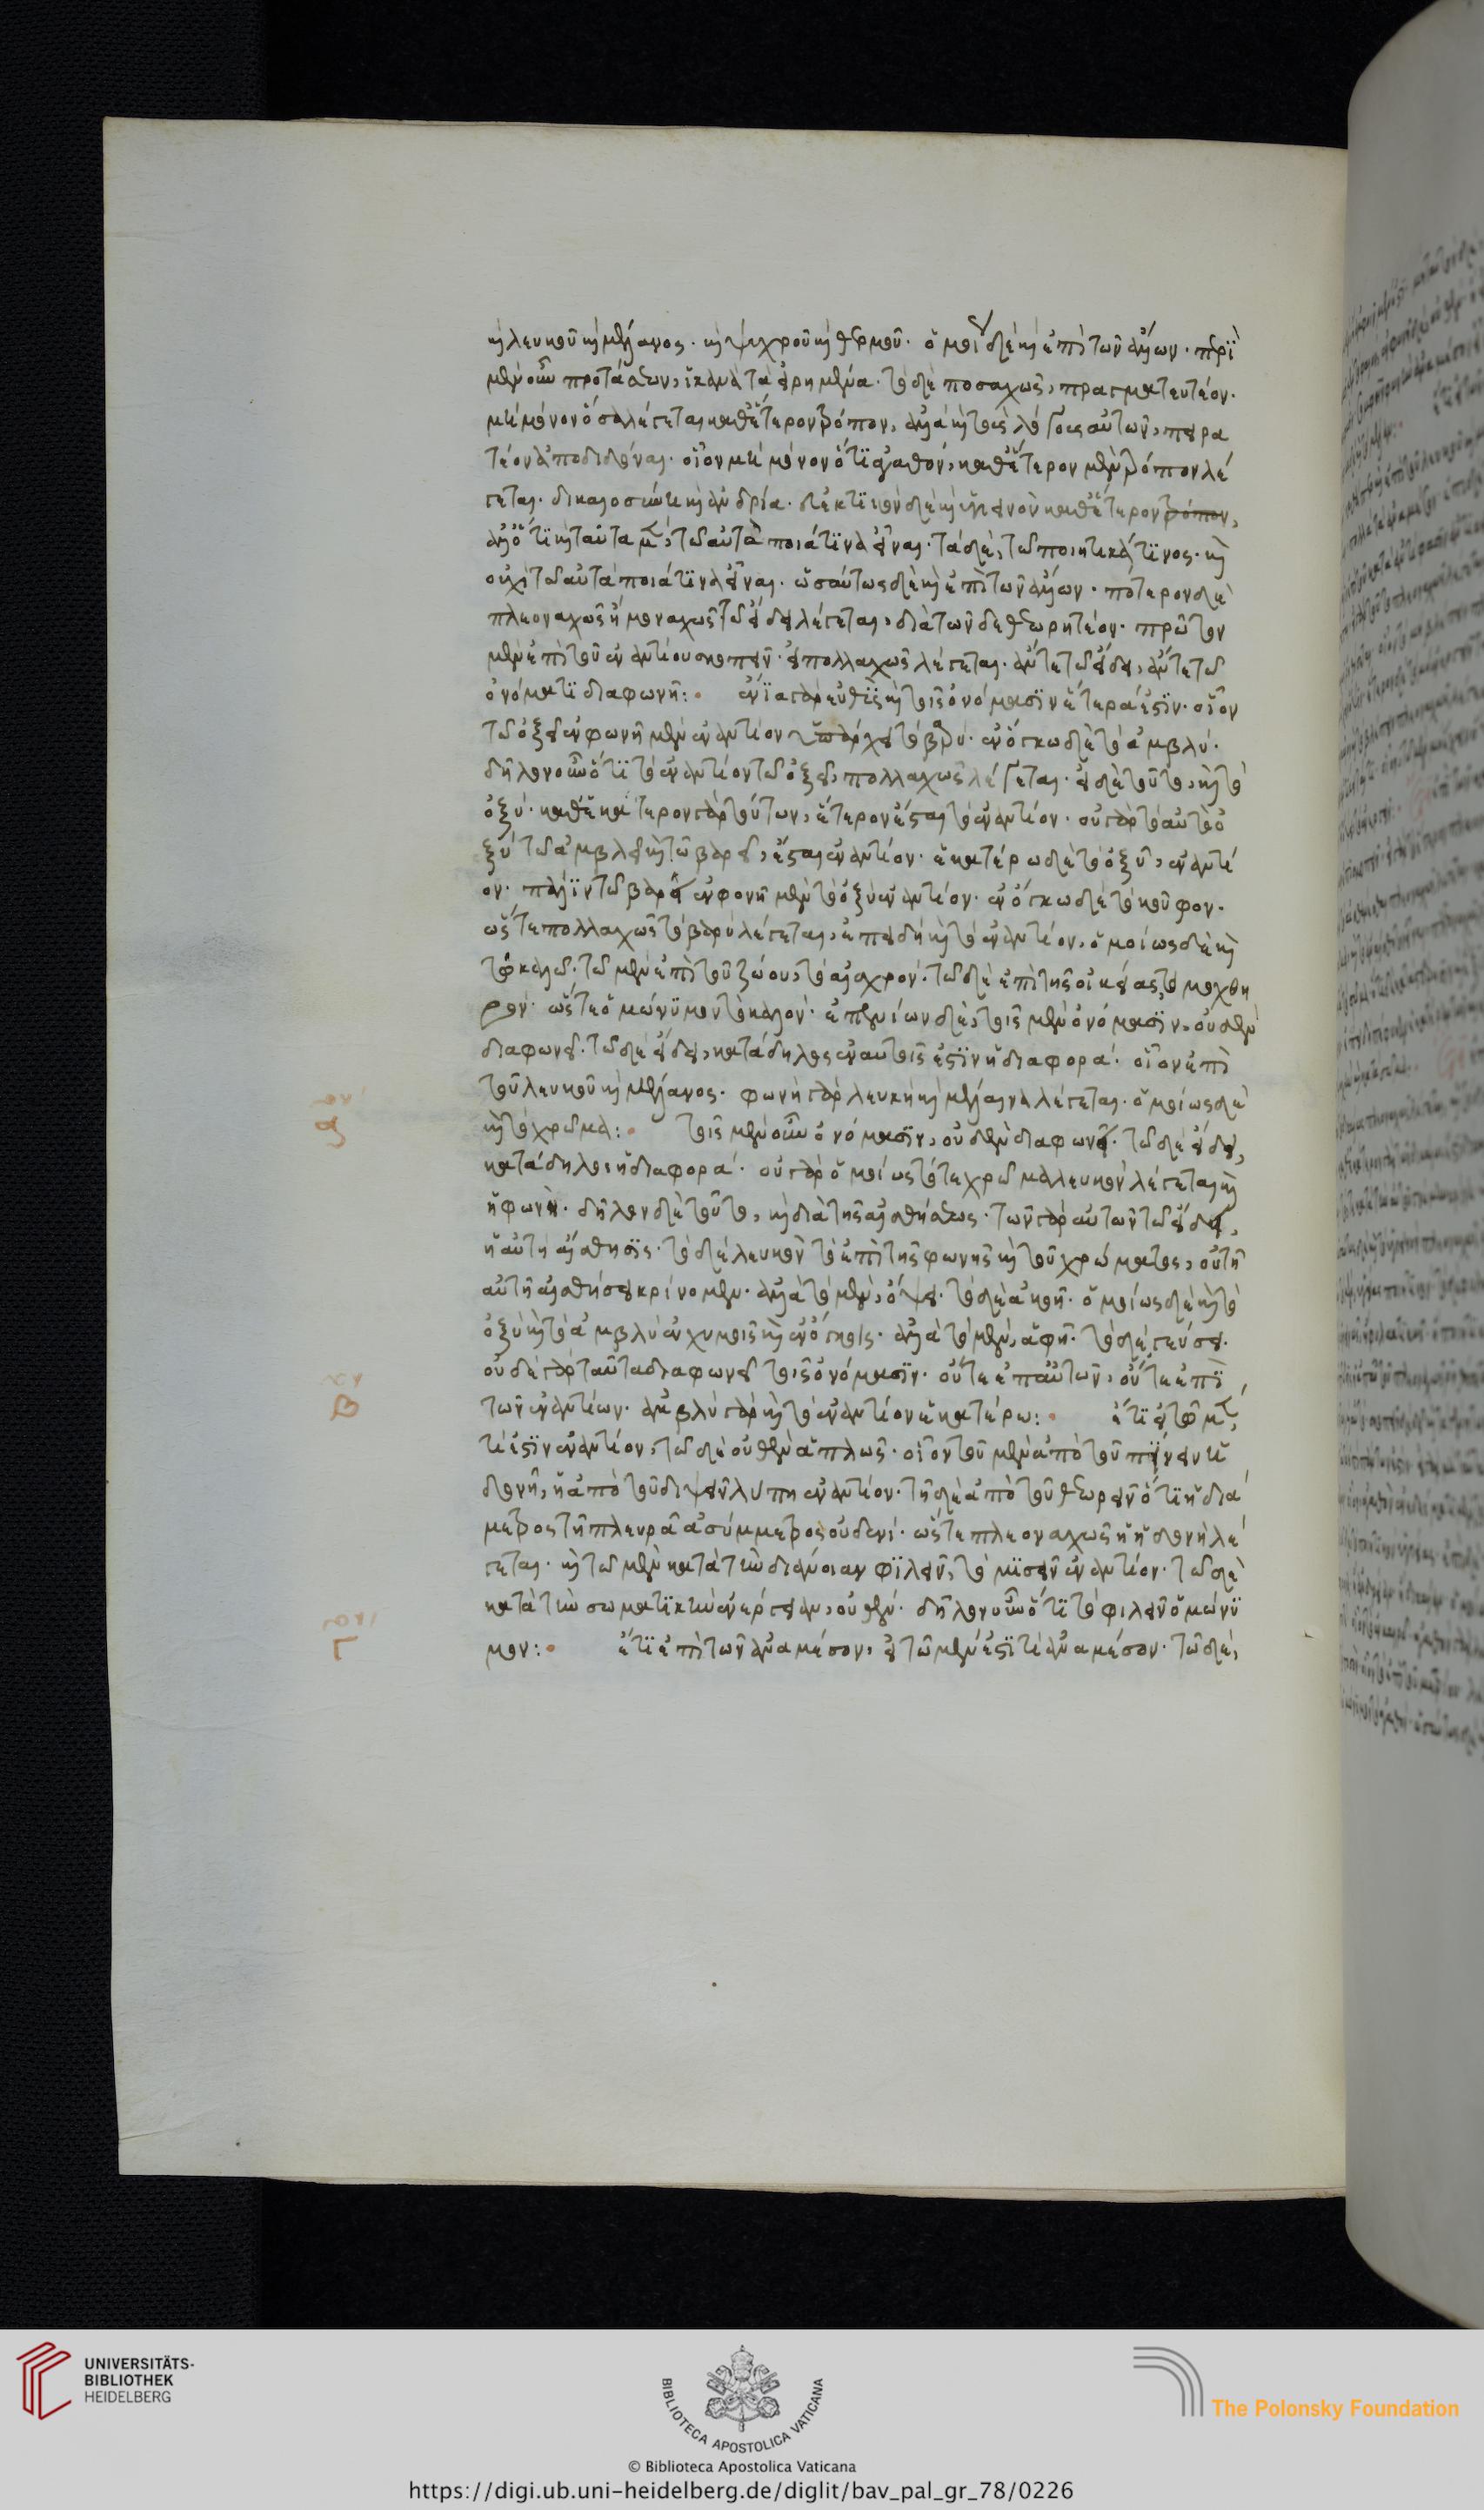 ἢ λευκοῦ ἢ μέλανος· ἢ ψυχροῦ ἢ θερμοῦ· ὁμοί δὲ καὶ ἐπὶ τῶν ἄλλων· περὶ
μὲν οὖν προτάσεων, ἱκανὰ τὰ εἰρημένα· τὸ δὲ ποσαχῶς, πραγματευτέον·
μὴ μόνον ὅσα λέγεται καθ' ἕτερον τρόπον, ἀλλὰ καὶ τοὺς λόγους αὐτῶν, πειρα
τέον ἀποδιδόναι· οἷον μὴ μόνον ὅτι ἀγαθόν, καθ' ἕτερον μὲν τρόπον λέ
γεται· δικαιοσύνη καὶ ἀνδρία· εὐεκτικὸν δὲ καὶ ὑγιεινὸν καθ' ἕτερον τρόπον,
ἀλλ' ὅτι καὶ ταῦτα μὲν, τῶ αὐτὰ ποιά τινα εἶναι· τὰ δὲ, τῶ ποιητικά τινος· καὶ
οὐχὶ τῶ αὐτὰ ποιά τινα εἶναι· ὡσαύτως δὲ καὶ ἐπὶ τῶν ἄλλων· πότερον δὲ
πλεοναχῶς ἢ μοναχῶς τῶ εἴδει λέγεται, διὰ τῶν δε θεωρητέον· πρῶτον
μὲν ἐπὶ τοῦ ἐναντίου σκοπεῖν· εἰ πολλαχῶς λέγεται· ἄν τε τῶ εἴδει, ἄν τε τῶ
ὀνόματι διαφωνῆ: ἔνια γὰρ εὐθὺς καὶ τοῖς ὀνόμασιν ἕτερά ἐστιν· οἷον
τῶ ὀξεῖ ἐν φωνῆ μὲν ἐναντίον ὑπάρχει τὸ βαρύ· ἐν ὄγκω δὲ τὸ ἀμβλύ·
δῆλον οὖν ὅτι τὸ ἐναντίον τῶ ὀξεῖ, πολλαχῶς λέγεται· εἰ δὲ τοῦτο, καὶ τὸ
ὀξύ· καθ' ἑκάτερον γὰρ τούτων, ἕτερον ἔσται τὸ ἐναντίον· οὐ γὰρ τὸ αὐτὸ ὀ
ξὺ τῶ ἀμβλεῖ καὶ τῶ βαρεῖ, ἔσται ἐναντίον· ἑκατέρω δὲ τὸ ὀξὺ, ἐναντί
ον· πάλιν τῶ βαρεῖ ἐν φονῆ μὲν τὸ ὀξὺ ἐναντίον· ἐν ὄγκω δὲ τὸ κοῦφον·
ὥστε πολλαχῶς τὸ βαρὺ λέγεται, ἐπειδὴ καὶ τὸ ἐναντίον, ὁμοίως δὲ καὶ
τῶ καλῶ· τῶ μὲν ἐπὶ τοῦ ζώου, τὸ αἰσχρόν· τῶ δὲ ἐπὶ τῆς οἰκείας, τὸ μοχθη
ρόν· ὥστε ὁμώνυμον τὸ καλόν· ἐπ' ἐνίων δὲ, τοῖς μὲν ὀνόμασιν, οὐδὲν
διαφωνεῖ· τῶ δὲ εἴδει, κατάδηλος ἐν αυτοῖς ἐστὶν ἡ διαφορά· οἷον ἐπὶ
τοῦ λευκοῦ καὶ μέλανος· φωνὴ γὰρ λευκὴ καὶ μέλαινα λέγεται· ὁμοίως δὲ
καὶ τὸ χρῶμα: τοῖς μὲν οὖν ὀνόμασιν, οὐδὲν διαφωνεῖ· τῶ δὲ εἴδει,
κατάδηλοι ἡ διαφορά· οὐ γὰρ ὁμοίως τό τε χρῶμα λευκὸν λέγεται καὶ
ἡ φωνὴ· δῆλον δὲ τοῦτο, καὶ διὰ τῆς αἰσθήσεως· τῶν γὰρ αὐτῶν τῶ εἴδει,
ἡ αὐτὴ αἴσθησις· τὸ δὲ λευκὸν τὸ ἐπὶ τῆς φωνῆς καὶ τοῦ χρώματος, οὐ τῆ
αὐτῆ αἰσθήσει κρίνομεν· ἀλλὰ τὸ μὲν, ὄψει· τὸ δὲ ἀκοῆ· ὁμοίως δὲ καὶ τὸ
ὀξὺ καὶ τὸ ἀμβλὺ ἐν χυμοῖς καὶ ἐν ὄγκοις· ἀλλὰ τὸ μὲν, ἁφῆ· τὸ δὲ, γεύσει·
οὐδὲ γὰρ ταῦτα διαφωνεῖ τοῖς ὀνόμασιν· οὔτε ἐπ' αὐτῶν, οὔτε ἐπὶ
τῶν ἐναντίων· ἀμβλὺ γὰρ καὶ τὸ ἐναντίον ἑκατέρω: ἔτι εἰ τῶ μὲν,
τί ἐστὶν ἐναντίον, τῶ δὲ οὐθὲν ἁπλῶς· οἷον τοῦ μὲν ἀπὸ τοῦ πίνειν ἡ
δονῆ, ἡ ἀπὸ τοῦ διψεῖν λύπη ἐναντίον· τῆ δὲ ἀπὸ τοῦ θεωρεῖν ὅτι ἡ διά
μετρος τῆ πλευρᾶ ἀσύμμετρος οὐδενί· ὥστε πλεοναχῶς ἡ ἡδονὴ λέ
γεται· καὶ τῶ μὲν κατὰ τὴν διάνοιαν φιλεῖν, τὸ μισεῖν ἐναντίον· τῶ δὲ
κατὰ τὴν σωματικὴν ἐνέργειαν, οὐθέν· δῆλον οὖν ὅτι τὸ φιλεῖν ὁμώνυ
μον: ἔτι ἐπὶ τῶν ἀνα μέσον, εἰ τῶ μὲν ἐστί τι ἀνα μέσον· τῶ δὲ,
Β
Γ
UNIVERSITÄTS-
BIBLIOTHEK
HEIDELBERG
BIBLIOTECA APOSTOLICA VATICANA
© Biblioteca Apostolica Vaticana
The Polonsky Foundation
https://digi.ub.uni-heidelberg.de/diglit/bav_pal_gr_78/0226